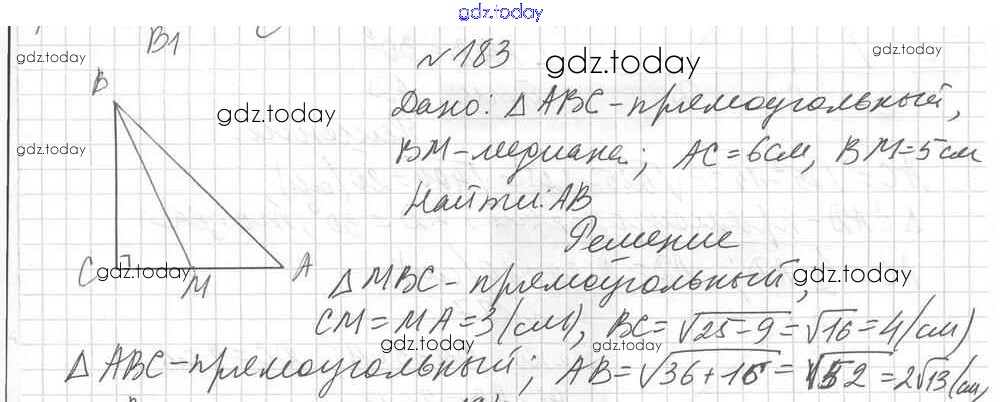 gdz.today
B1
gdz.today
№183
gdz.today
gdz.today
B
gdz.today
Дано: △ABC - прямоугольный,
gdz.today
BM - медиана; AC = 6см, BM = 5см
Найти: AB
Решение
C
M
A
gdz.today
△MBC - прямоугольный,
gdz.today
CM = MA = 3 (см), BC = √25-9 = √16 = 4 (см)
gdz.today
gdz.today
△ABC - прямоугольный; AB = √36+16 = √52 = 2√13 (см)